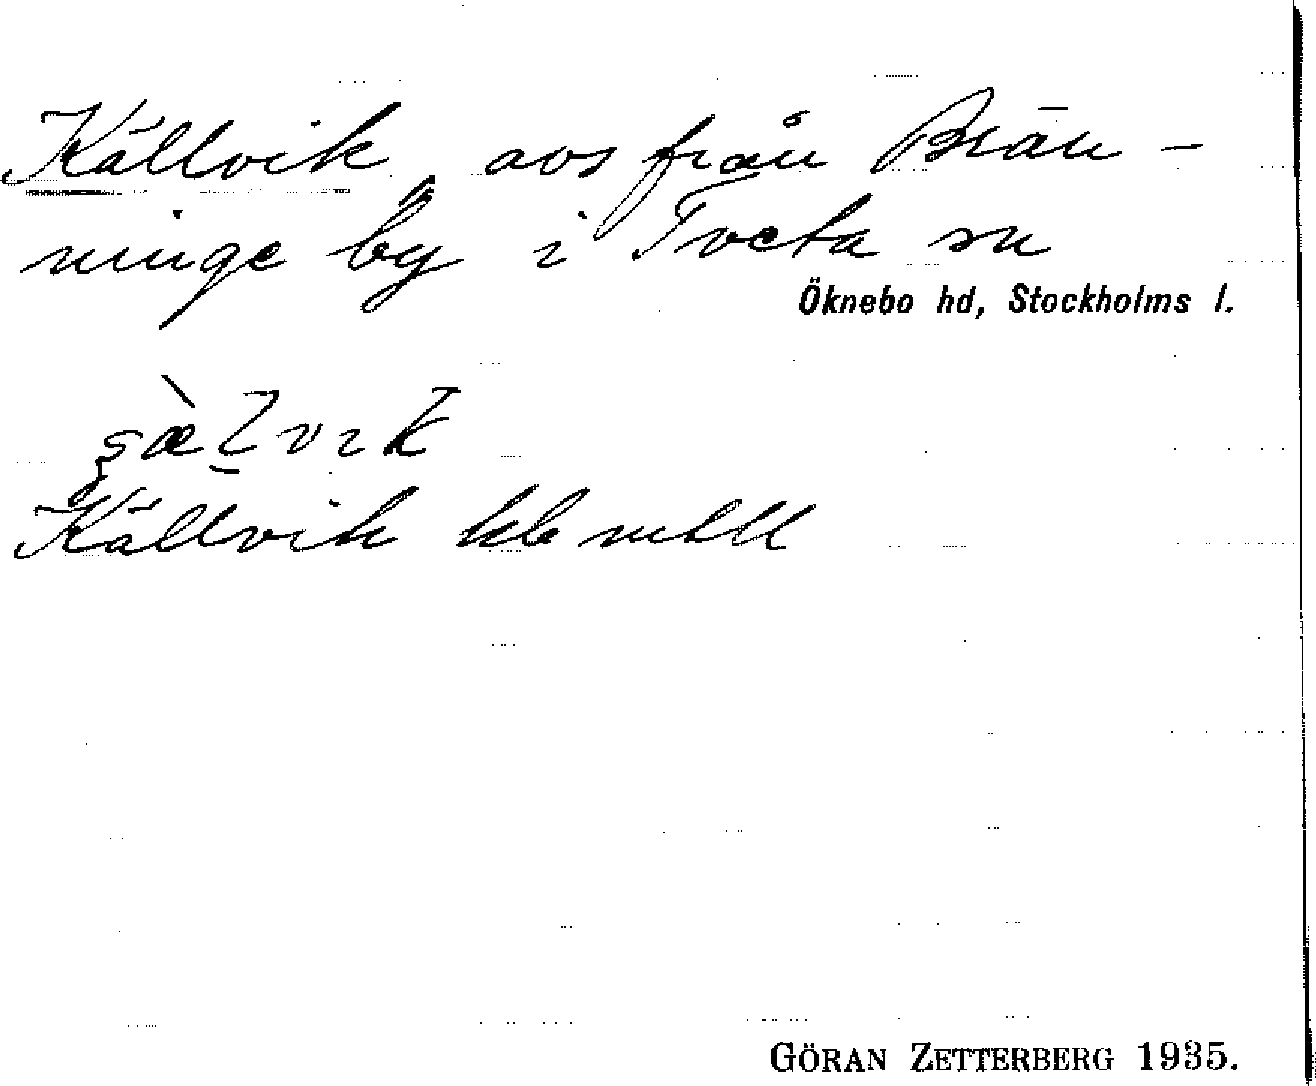 Källvik avs från Brän-
ninge by i Tveta sn
Öknebo hd, Stockholms l.
Källvik
GÖRAN ZETTERBERG 1935.